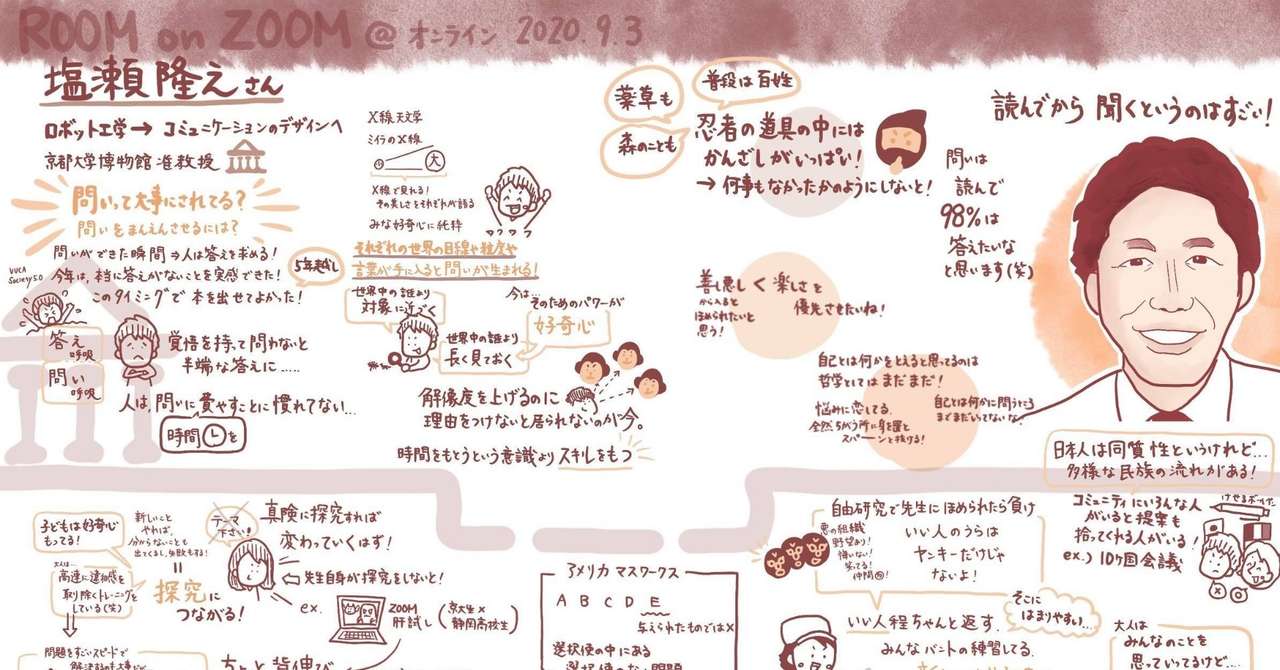 ROOM on ZOOM @ オンライン 2020.9.3
塩瀬隆之さん
ロボット工学→ コミュニケーションのデザインへ
京都大学博物館 准教授
問いって大事にされてる?
問いをまんえんさせるには?
問いができた瞬間⇒人は答えを求める!
VUCA
Society5.0
今年は、本当に答えがないことを実感できた!
このタイミングで本を出せてよかった!
5年越し
答え
呼吸
問い
呼吸
覚悟を持って問わないと
半端な答えに.....
人は、問いに費やすことに慣れてない...
時間を
X線天文学
ミイラのX線
小
大
X線で見れる!
その美しさをそれぞれが語る
みな好奇心に純粋
それぞれの世界の目線や粒度や
言葉が手に入ると問いが生まれる!
世界中の誰より
対象に近づく
世界中の誰より
長く見ておく
今は...
そのためのパワーが
好奇心
解像度を上げるのに
理由をつけないと居られないのが今。
時間をもとうという意識よりスキルをもつ
薬草も
森のことも
普段は百姓
忍者の道具の中には
かんざしがいっぱい!
→ 何事もなかったかのようにしないと!
善し悪し
から入ると
ほめられたいと
思う!
く 楽しさを
優先させたいね!
自己とは何かをとえると思ってるのは
哲学としてはまだまだ!
悩みに恋してる。
全然ちがう所に身を置と
スパーンと抜ける!
自己とは何かに問うところ
までまだいってないな。
読んでから 聞くというのはすごい!
問いは
読んで
98%は
答えたいな
と思います(笑)
日本人は同質性というけれど...
多様な民族の流れがある!
コミュニティにいろんな人
がいると提案も
拾ってくれる人がいる!
ex.) 10ヶ国会議
けせるボールペン
子どもは好奇心
もってる!
大人は...
高速に違和感を
取り除くトレーニングを
している(笑)
新しいこと
やれば、
分からないことも
出てくるし、失敗もする!
=
探究に
つながる!
問題をすごいスピードで
テーマ
下さい!
真険に探究すれば
変わっていくはず!
先生自身が探究をしないと!
ex.
ZOOM
肝試し
(京大生×
静岡高校生)
ちょっと背伸び
アメリカ マスワークス
A B C D E
与えられたものでは×
選択使の中にある
自由研究で先生にほめられたら負け
悪の組織
野望あり!
悔いない!
笑ってる!
いい人のうらは
ヤンキーだけじゃ
ないよ!
いい人程ちゃんと返す。
そこに
はまりやすい...
みんなバントの練習してる。
大人は
みんなのことを
思っているけど....